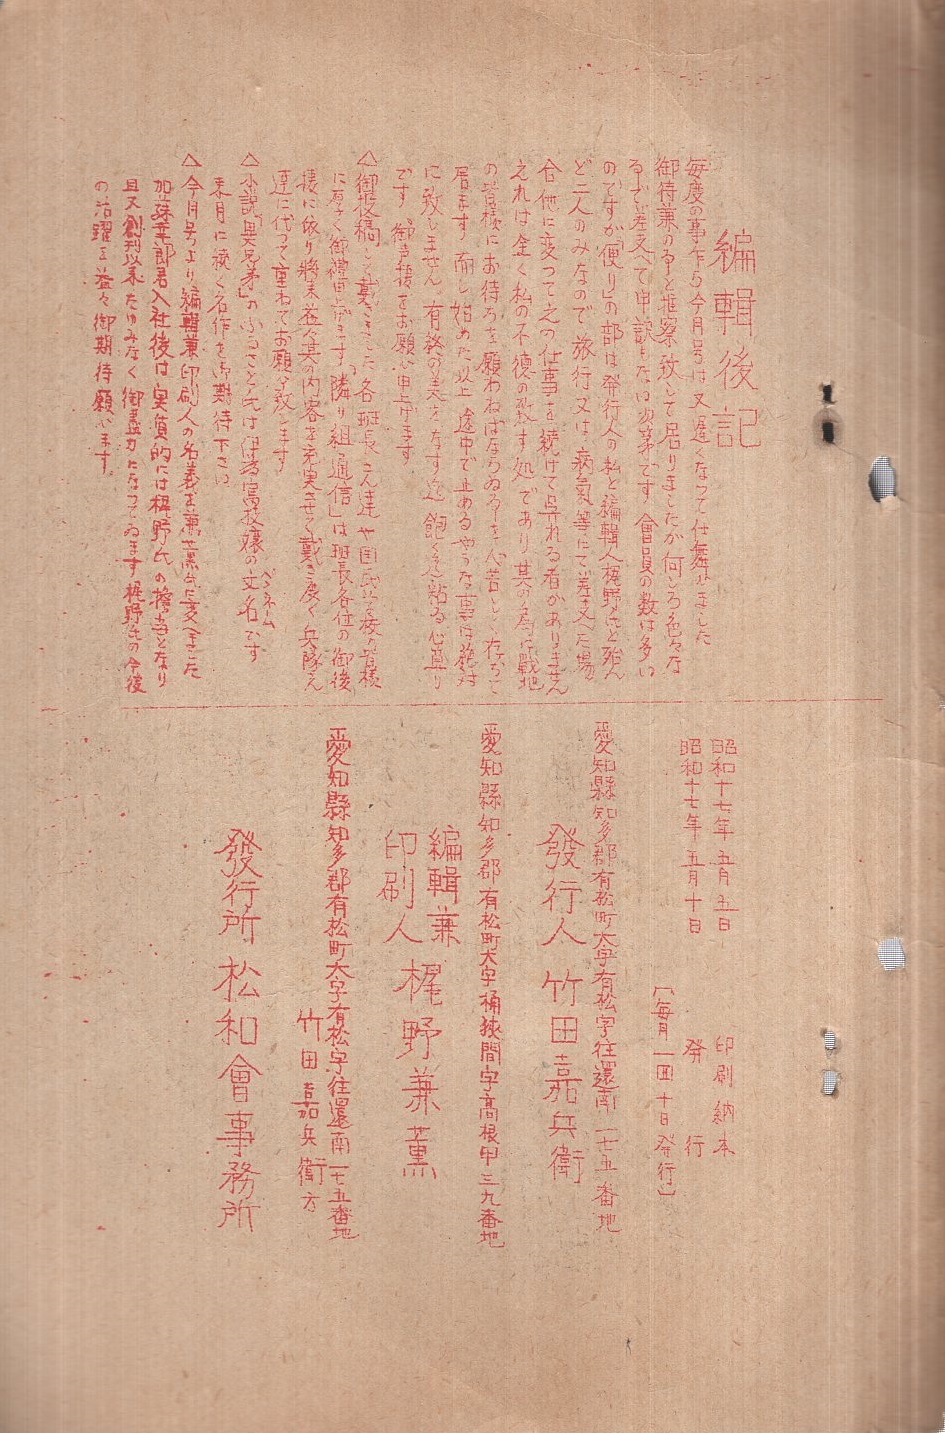 編輯後記
毎度の事乍ら今月号は又遅くなつて仕舞ひました
御待兼の事と推察致して居りましたが何しろ色々な
差支へで申訳もない次第です 會員の数は多い
のですが「便り」の部は発行人の私と編輯人梶野氏と殆ん
ど二人のみなので旅行又は病氣等にて差支へた場
合他に変つて之の仕事を続けて呉れる者がありません
これは全く私の不徳の致す処であり其の為に戦地
の皆様にお待ちを願わねばならぬ事を心苦しく存じて
居ます 而し始めた以上途中で止めるやうな事は絶対
に致しません、有終の美をなす迄 飽くまで粘る心算り
です 御声援をお願ひ申上げます。
△御投稿して戴きました各班長さん達や国民学校の皆様
に厚く御禮申上げます「隣り組通信」は班長各位の御後
援に依り將来益々其の内容を充実させて戴き度く兵隊さん
達に代つて重ねてお願ひ致します
△小説「異兄弟」のふるさと氏は 嬢の文名です
ペンネーム
来月に続く名作を御期待下さい
△今月号より編輯兼印刷人の名義を兼薫氏に変へました
加藤幸一郎君入社後は実質的には梶野氏の擔当となり
且又創刊以来たゆみなく御盡力になつてゐます梶野氏の今後
の活躍を益々御期待願ひます。
昭和十七年五月五日 印刷納本
昭和十七年五月十日 発行
〔毎月一回十日発行〕
愛知縣知多郡有松町大字有松字往還南一七五番地
發行人 竹田嘉兵衛
愛知縣知多郡有松町大字桶狭間字高根甲三九番地
編輯兼
印刷人 梶野兼薫
愛知縣知多郡有松町大字有松字往還南一七五番地
竹田嘉兵衛方
發行所 松和會事務所